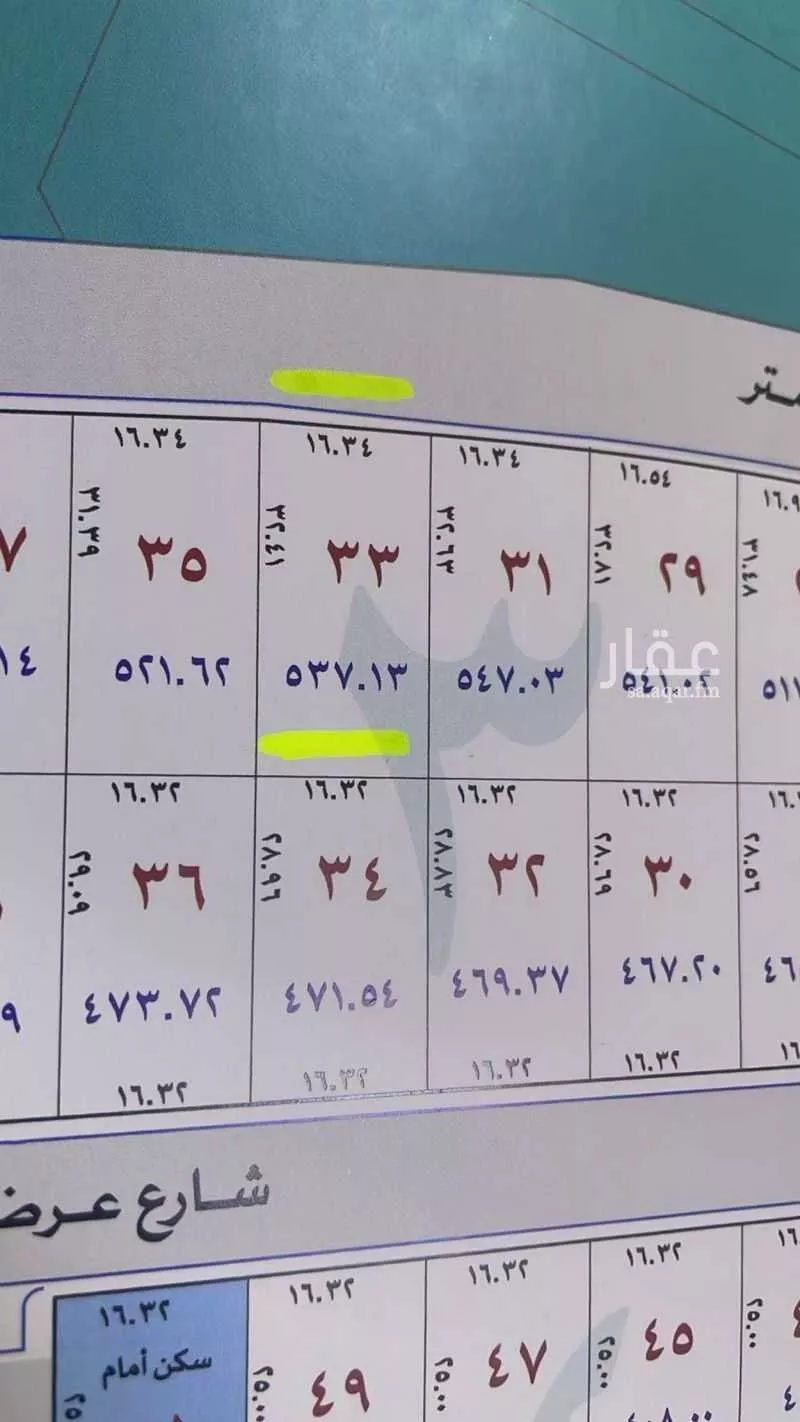 متر
١٦.٣٤ ١٦.٣٤ ١٦.٣٤ ١٦.٥٤
٣١.٣٩ ٣٢.٤١ ٣٢.٦٣ ٣٢.٨١ ٣١.٤٨
٣٥ ٣٣ ٣١ ٢٩
عقار
sa.aqar.fm
٥٢١.٦٢ ٥٣٧.١٣ ٥٤٧.٠٣ ٥٤١.٠٢
٣
١٦.٣٢ ١٦.٣٢ ١٦.٣٢ ١٦.٣٢
٢٩.٠٩ ٢٨.٩٦ ٢٨.٨٣ ٢٨.٦٩ ٢٨.٥٦
٣٦ ٣٤ ٣٢ ٣٠
٤٧٣.٧٢ ٤٧١.٥٤ ٤٦٩.٣٧ ٤٦٧.٢٠
١٦.٣٢ ١٦.٣٢ ١٦.٣٢ ١٦.٣٢
شارع عرض
١٦.٣٢ ١٦.٣٢ ١٦.٣٢ ١٦.٣٢
سكن أمام
٢٥.٠٠ ٢٥.٠٠ ٢٥.٠٠ ٢٥.٠٠
٤٩ ٤٧ ٤٥